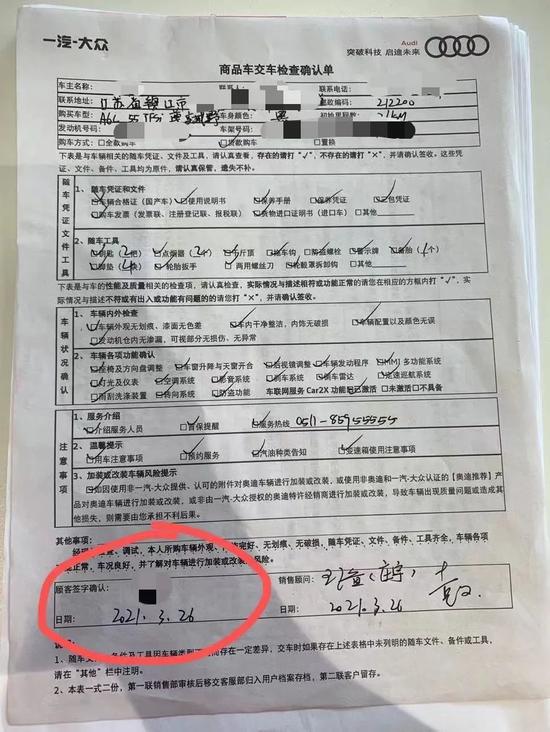 一汽-大众
Audi
突破科技 启迪未来
商品车交车检查确认单
车主名称:
联系电话:
联系地址: 江苏省镇江市 邮政编码: 212200
购买车型: A6L 55 TFSi 车身颜色: 黑 初始里程数:
发动机号码: 车架号码:
购车方式: □全款购车 贷款购车 □置换
下表是与车辆相关的随车凭证、文件及工具，请认真查看，存在的请打“√”，不存在的请打“×”，并请确认签收。这些凭
证、文件、备件、工具均为原件，请认真保管，遗失不补。
随车凭证文件工具
1、随车凭证和文件
□车辆合格证（国产车） □使用说明书 □保养手册 □保养凭证 □三包凭证
□购车发票（发票联、注册登记联、报税联） □货物进口证明书（进口车） □其他
2、随车工具
□钥匙（2把） □点烟器（2个） □千斤顶 □拖车钩 □防盗螺栓 □警示牌 □备胎（1个）
□脚垫（4块） □轮胎扳手 □两用螺丝刀 □轮毂罩拆卸钩 □其他
下表是与车的性能及质量相关的检查项，请认真检查，实际情况与描述相符或功能正常的请您在相应的方框内打“√”，实
际情况与描述不符或有出入或功能有问题的的请您打“×”，并请确认签收。
车辆状况确认
1、车辆内外检查
□车辆外观无划痕、漆面无色差 □车内干净整洁，内饰无破损 □车辆配置以及颜色无误
□发动机仓内无渗漏、可视部分无损伤、无异常
2、车辆各项功能确认
□座椅及方向盘调整 □车窗升降与天窗开合 □后视镜调整 □车辆发动程序 □MMI 多功能系统
□灯光及仪表 □空调系统 □影音系统 □刹车系统 □倒车雷达 □定速巡航系统
□雨刮洗涤装置 □转向系统 □防盗功能 车联网服务 Car2X 功能 □已激活 □未激活 □不具备
注意事项
1、服务介绍
□介绍服务人员 □首保提醒 □服务热线 0511-85955555
2、温馨提示
□用车注意事项 □预约服务 □汽油种类告知 □变速箱使用注意事项
3、加装或改装车辆风险提示
□如因使用非一汽-大众提供、认可的附件对奥迪车辆进行加装或改装，或使用非奥迪和一汽-大众认证的【奥迪推荐】产
品对奥迪车辆进行加装或改装，或非由一汽-大众授权的奥迪特许经销商进行加装或改装，导致车辆出现质量问题或造成其
他损失，则需要由您承担不利后果。
其他事项：
调试，本人所购车辆外观、完好、无划痕、无破损，随车凭证、文件、备件、工具齐全，车辆各项
正常，车况良好，并了解对车辆进行加装或改装风险。
顾客签字确认: 销售顾问:
日期: 2021.3.26 日期: 2021.3.26
1、随车文件、备件及工具因车辆类型不同而存在一定差异，交车时如果存在上述表格中未列明的随车文件、备件或工具，
请在“其他”栏中注明。
2、本表一式二份，第一联销售部审核后移交客服部归入用户档案存档，第二联客户留存。